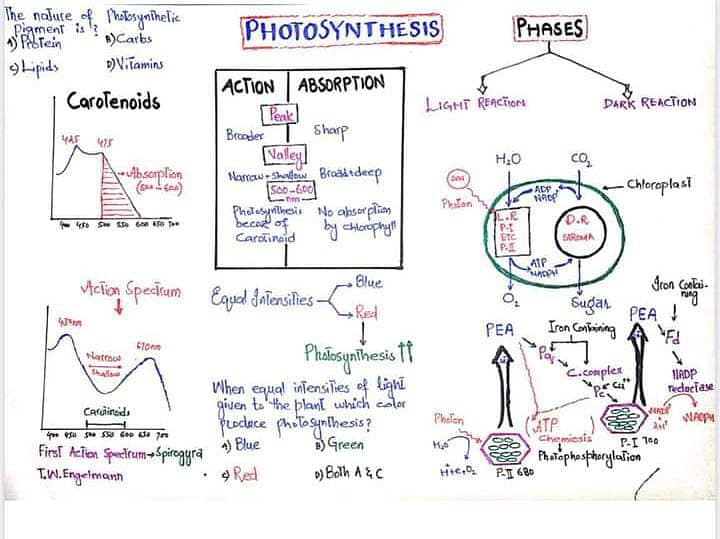 The nature of Photosynthetic
Pigment is?
A) Protein B) Carbs
C) Lipids D) Vitamins
PHOTOSYNTHESIS
PHASES
Carotenoids
425 475
Absorption
(500-600)
400 450 500 550 600 650 700
ACTION ABSORPTION
Peak
Broader Sharp
Valley
Narrow+Shallow Broad+deep
500-600
nm
Photosynthesis No absorption
becoz of by chlorophyll
Carotinoid
LIGHT REACTION DARK REACTION
H₂O CO₂
SUN
Photon
ADP
NADP
Chloroplast
L.R
P-I
ETC
P-II
D.R
STROMA
ATP
NADPH
O₂ Sugar
Action Spectrum
430nm 670nm
Narrow
Shallow
Carotinoids
400 450 500 550 600 650 700
First Action Spectrum→Spirogyra
T.W.Engelmann
Equal Intensities
Blue
Red
Photosynthesis ↑↑
When equal intensities of light
given to the plant which color
produce photosynthesis?
A) Blue B) Green
C) Red D) Both A & C
PEA
Iron Containing
Pq
C.complex
Pc Cu⁺⁺
PEA
Iron Contai-
ning
Fd
NADP
reductase
NADP
2H⁺
NADPH
P-I 700
(ATP
Chemiosis)
Photophosphorylation
Photon
H₂O
H⁺+e,O₂
P-II 680